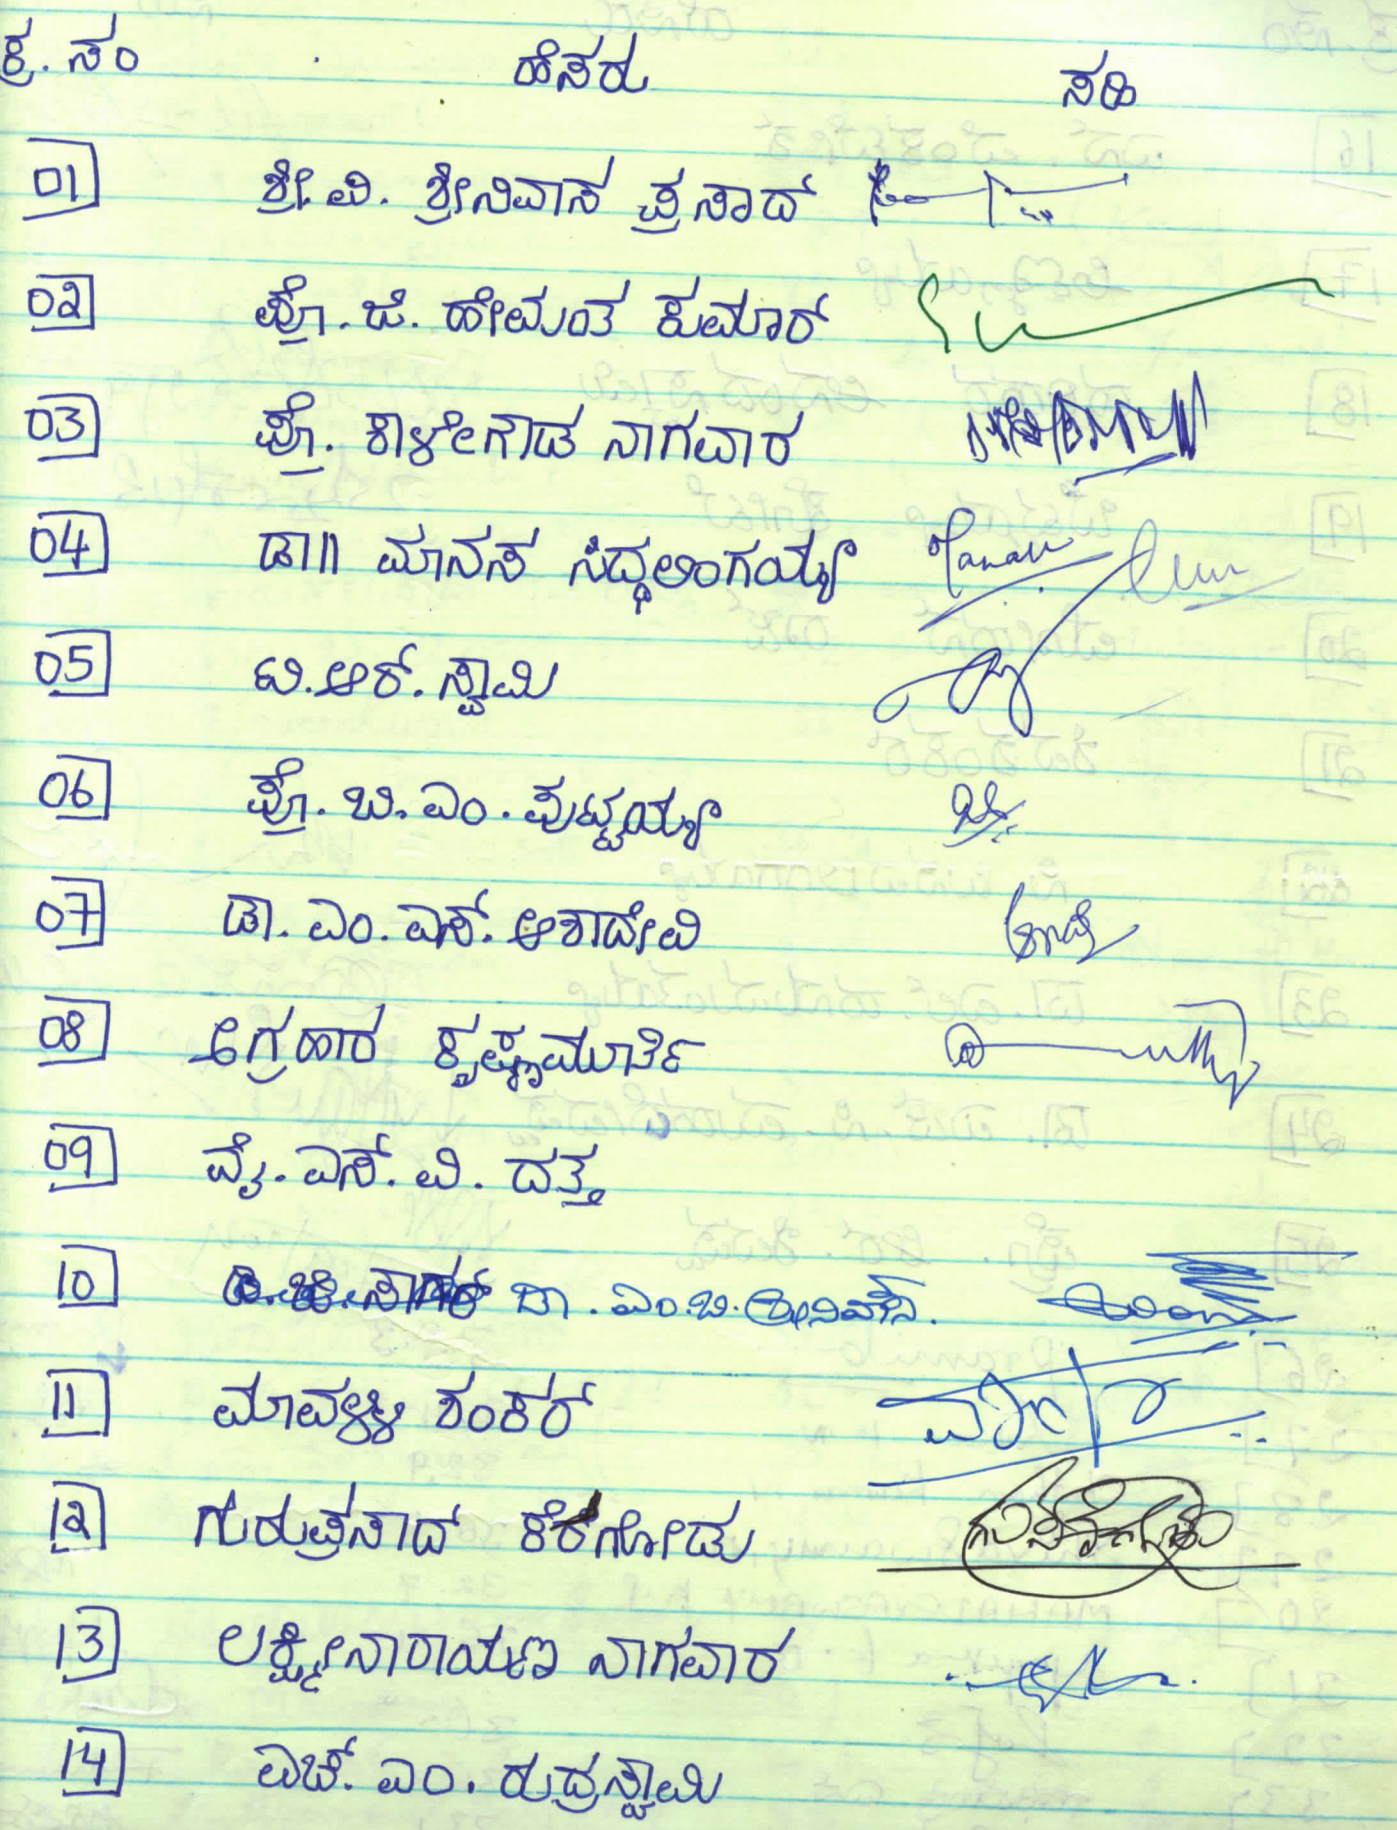 ಕ್ರ. ಸಂ ಹೆಸರು ಸಹಿ
01 ಶ್ರೀ. ವಿ. ಶ್ರೀನಿವಾಸ ಪ್ರಸಾದ್
02 ಪ್ರೊ. ಜೆ. ಹೇಮಂತ ಕುಮಾರ್
03 ಪ್ರೊ. ಕಾಳೇಗೌಡ ನಾಗವಾರ
04 ಡಾ|| ಮಾನಸ ಸಿದ್ಧಲಿಂಗಯ್ಯ
05 ಟಿ.ಆರ್. ಸ್ವಾಮಿ
06 ಪ್ರೊ. ಬಿ. ಎಂ. ಪುಟ್ಟಯ್ಯ
07 ಡಾ. ಎಂ. ಎಸ್. ಆಶಾದೇವಿ
08 ಅಗ್ರಹಾರ ಕೃಷ್ಣಮೂರ್ತಿ
09 ವೈ. ಎಸ್. ವಿ. ದತ್ತ
10 ಡಾ. ಎಂ.ಬಿ. ಶ್ರೀನಿವಾಸ.
11 ಮಾವಳ್ಳಿ ಶಂಕರ್
12 ಗುರುಪ್ರಸಾದ್ ಕೆರಗೋಡು
13 ಲಕ್ಷ್ಮೀನಾರಾಯಣ ನಾಗವಾರ
14 ಎಚ್. ಎಂ. ರುದ್ರಸ್ವಾಮಿ